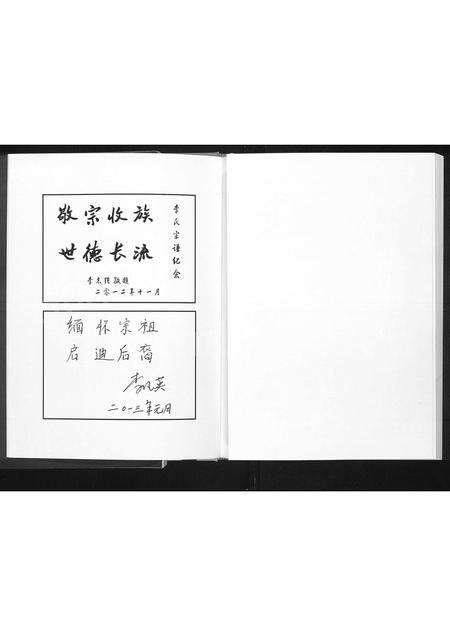 敬宗收族
世德长流
李氏宗谱纪念
二〇一二年十一月
缅怀宗祖
启迪后裔
二〇一三年元月